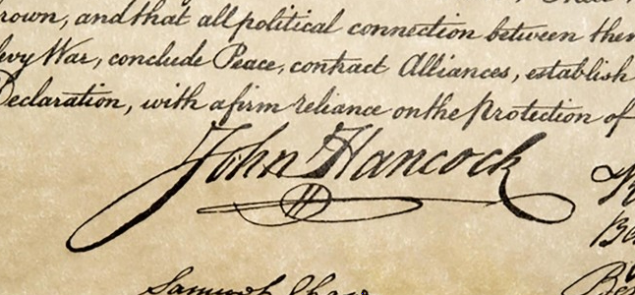 rown, and that all political connection between the
levy War, conclude Peace, contract Alliances, establish
Declaration, with a firm reliance on the Protection of
John Hancock